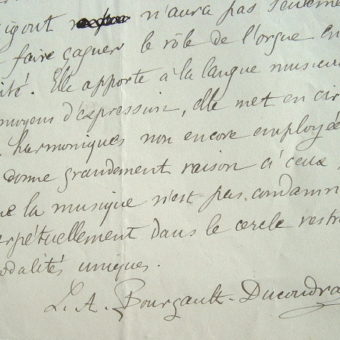 igout n'aura pas seuleme
faire gagner le rôle de l'orgue en
ité. Elle apporte à la langue musicu
moyens d'expression, elle met en cir
harmoniques non encore employée
donne grandement raison à ceux
la musique n'est pas condamn
erpétuellement dans le cercle restre
odalités uniques.
L. A. Bourgault-Ducoudra